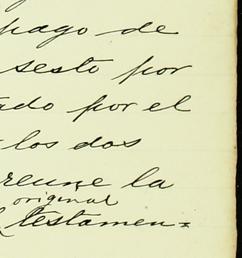 pago de
sesto por
ado por el
los dos
reune la
original
testamen=